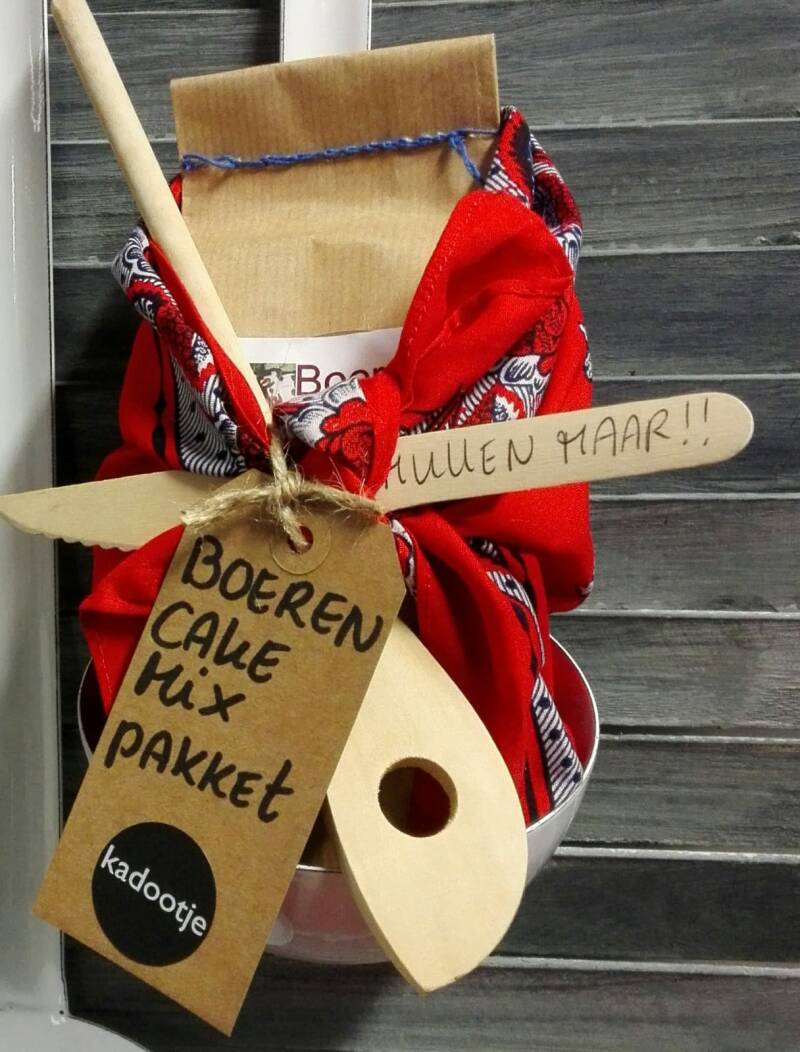 Boer
HULLEN MAAR!!
BOEREN
CAKE
MiX
PAKKET
kadootje